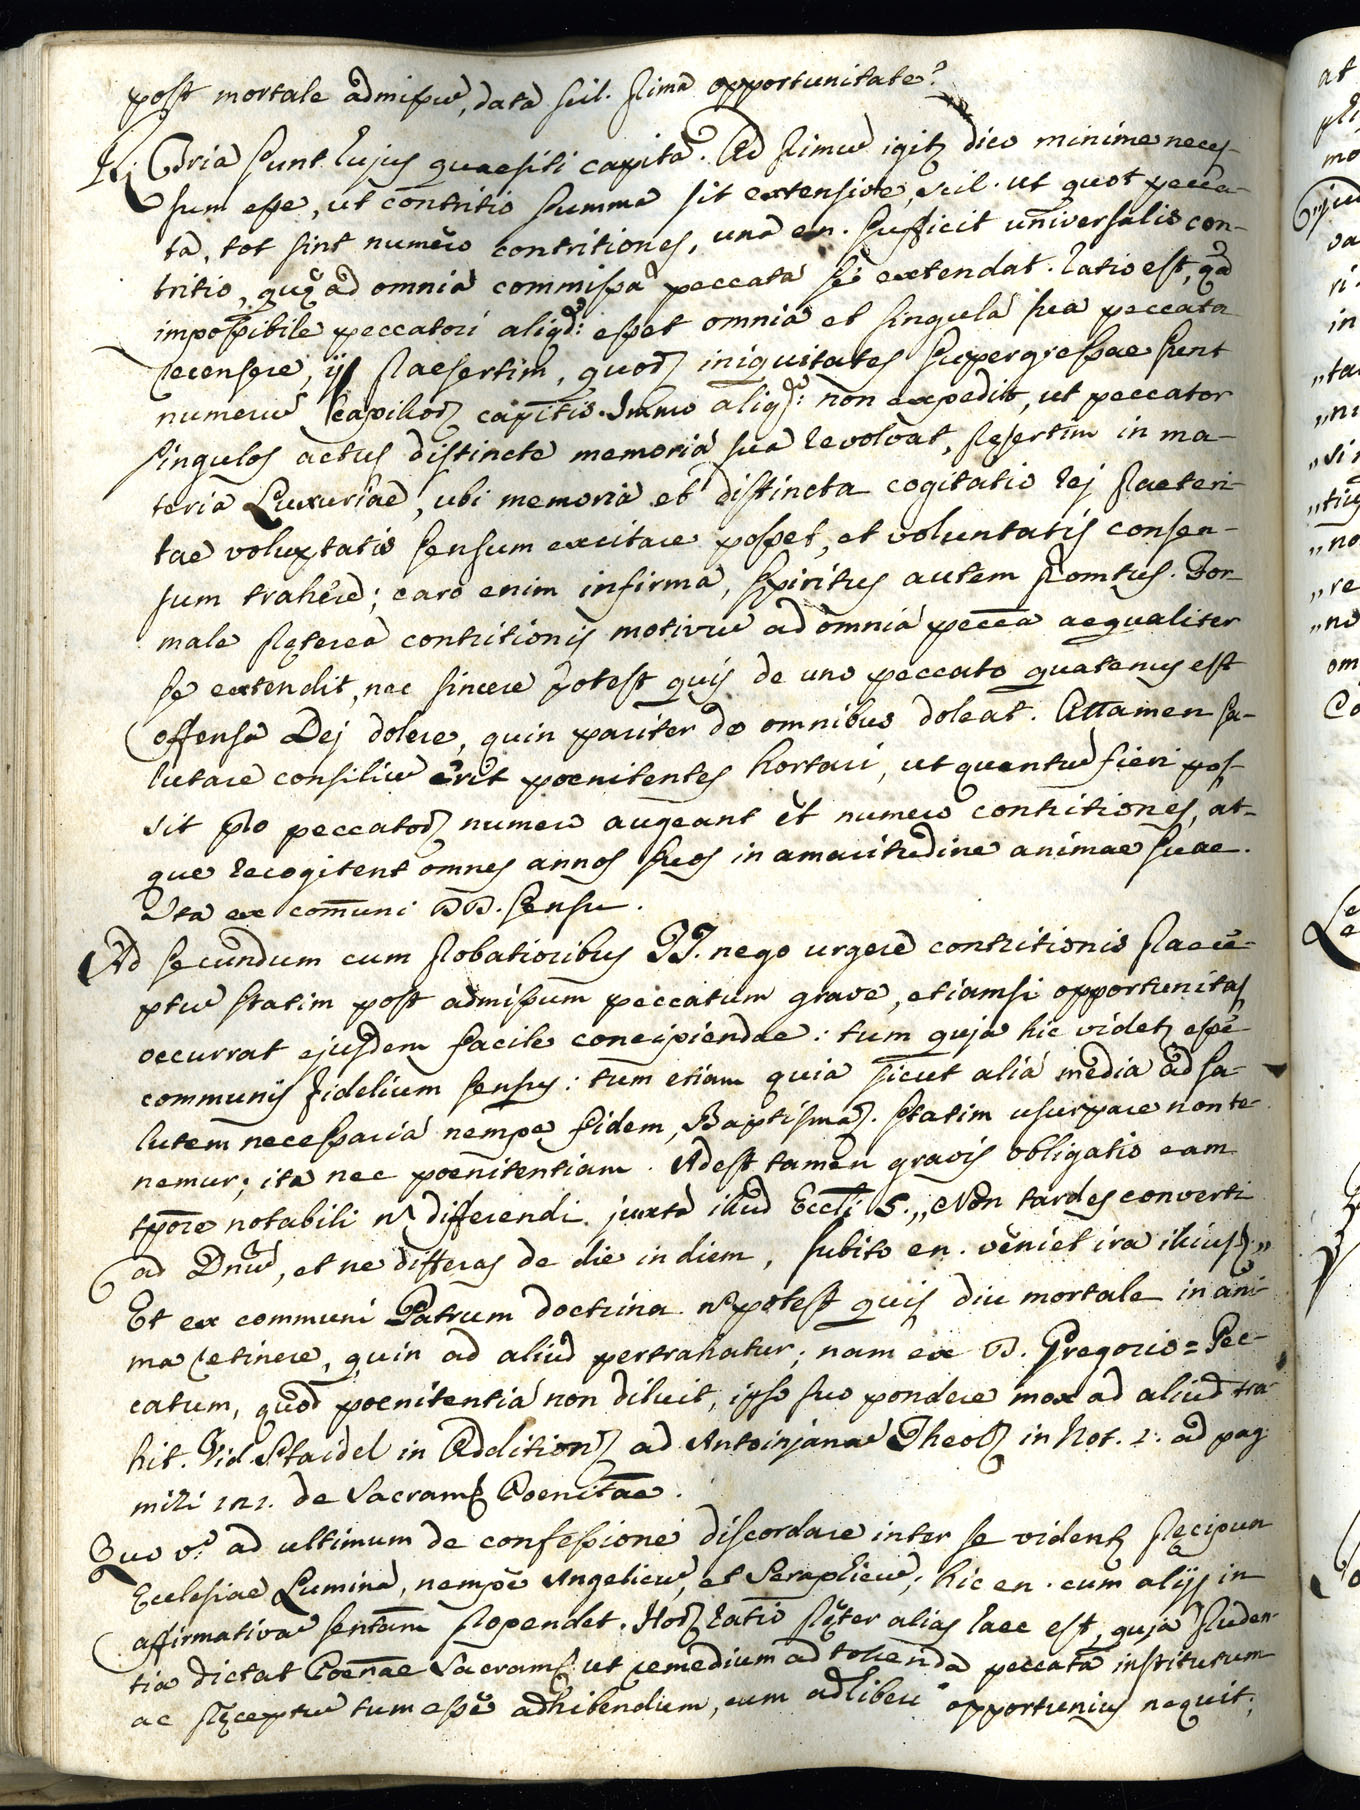 post mortale admissum, data scil. prima opportunitate?
R. Tria sunt hujus quaesiti capita. Ad primum igitur dico minime neces-
sum esse, ut contritio summa sit extensive, scil. ut quot pecca-
ta, tot sint numero contritiones, una en. sufficit universalis con-
tritio, quae ad omnia commissa peccata se extendat. Ratio est, qd
impossibile peccatori aliqdo: esset omnia et singula sua peccata
recensere, ijs praesertim, quorum iniquitates supergressae sunt
numerum capillorum capitis. Immo aliqdo: non expedit, ut peccator
singulos actus distincte memoria sua revolvat, presertim in ma-
teria Luxuriae, ubi memoria et distincta cogitatio rej praeteri-
tae voluptatis sensum excitare posset, et voluntatis consen-
sum trahere; caro enim infirma, spiritus autem promtus. For
male preterea contritionis motivum ad omnia peccata aequaliter
se extendit, nec sincere potest quis de uno peccato quatenus est
offensa Dej dolere, quin pariter de omnibus doleat. Attamen sa-
lutare consilium erit poenitentes hortari, ut quantum fieri pos-
sit pro peccatorum numero augeant et numero contritiones, at-
que recogitent omnes annos suos in amaritudine animae suae.
Ita ex communi DD. sensu.
Ad secundum cum probatioribus TT. nego urgere contritionis praece-
ptum statim post admissum peccatum grave, etiamsi opportunitas
occurrat ejusdem facile concipiendae: tum quja hic videtur esse
communis fidelium sensus: tum etiam quia sicut alia media ad sa-
lutem necessaria nempe fidem, Baptismum. statim usurpare non te-
nemur; ita nec poenitentiam. Adest tamen gravis obligatio eam
tpore notabili n differendi. juxta illud Eccli 5. „Non tardes converti
ad Dnum, et ne differas de die in diem, subito en. veniet ira illius„
Et ex communi Patrum doctrina n potest quis diu mortale in ani-
ma retinere, quin ad aliud pertrahatur; nam ex D. Gregorio = Pec-
catum, quod poenitentia non diluit, ipso suo pondere mox ad aliud tra-
hit. Vid. Staidel in Addition. ad Antoinjanam Theolog in Not. 2. ad pag
mihi 121. de Sacram. Poenitae.
Quo vo ad ultimum de confessione discordare inter se videntur precipua
Ecclesiae Lumina, nempe Angelicum, et Seraphicum; hic en. cum alijs in
affirmativam sententiam propendet. Horum ratio preter alias haec est, quja pruden-
tia dictat Poenae Sacram. ut remedium ad tollenda peccata institutum
ac preceptum tum esse adhibendum, cum adhiberi opportunius nequit;